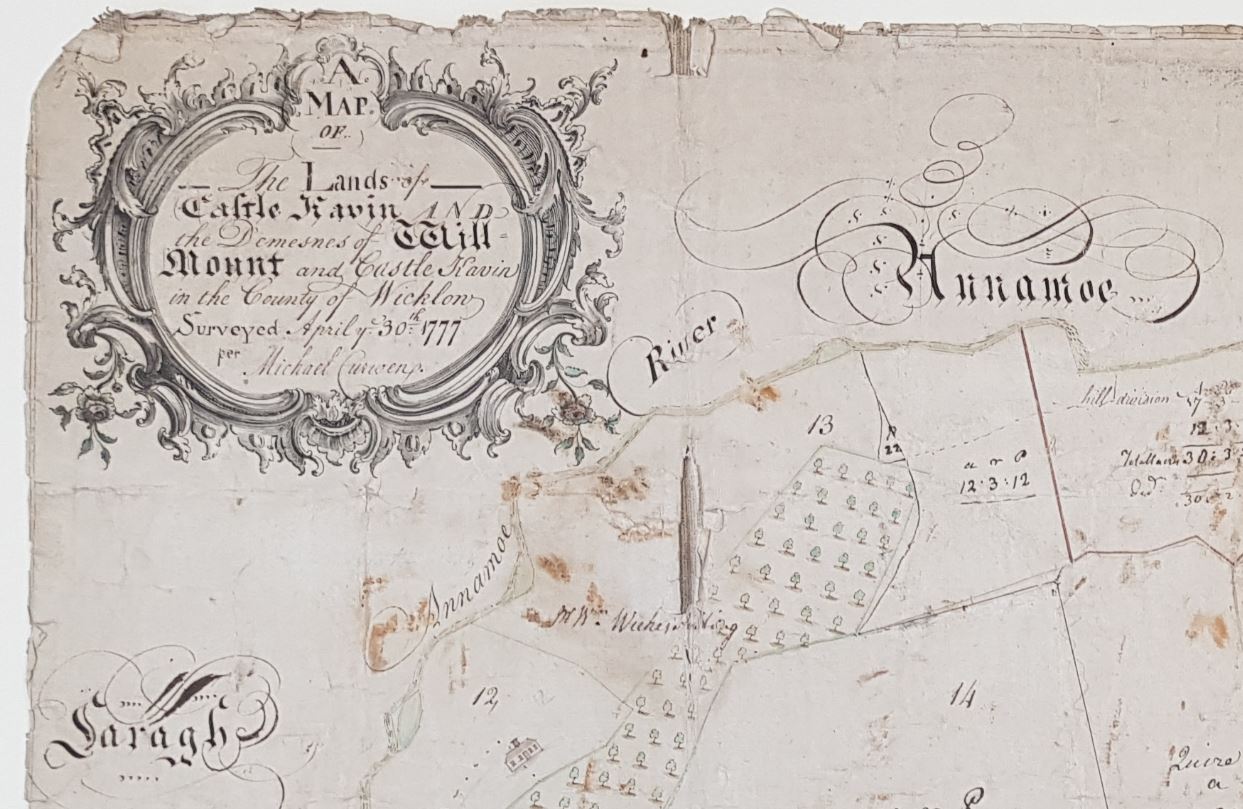 A
MAP.
OF.
The Lands of
Castle Kavin AND
the Demesnes of Will-
Mount and Castle Kavin
in the County of Wicklow
Surveyed April yᵉ 30ᵗʰ 1777
per Michael Curwen
Annamoe
River
hill division
13
22
a r P
12:3:12
12:3
30:3
30
Annamoe
Wm
12
14
Laragh
a
P